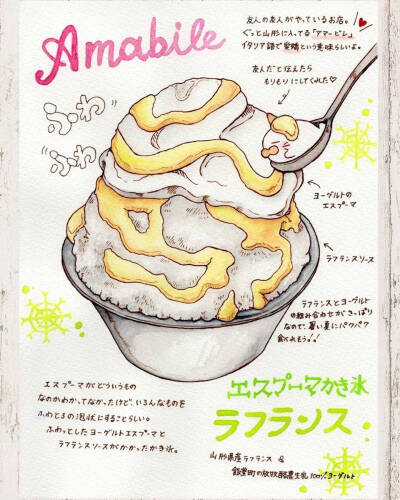 Amabile
友人の友人がやっているお店。
ぐっと山形に入ってる「アマービレ」
イタリア語で愛嬌という意味らしいよ。
友人だと伝えたら
もりもりにしてくれた♡
ふわ
ふわ
ヨーグルトの
エスプーマ
ラフランスソース
ラフランスとヨーグルト
の組み合わせがさっぱり
なので、暑い夏にパクパク
食べれそう!!
エスプーマかき氷
ラフランス
山形県産ラフランス &
飯豊町の放牧酪農生乳100%ヨーグルト
エスプーマがどういうもの
なのかわかってなかったけど、いろんなものを
ふわとろの泡状にすることらしい。
ふわっとしたヨーグルトエスプーマと
ラフランスソースがかかったかき氷。